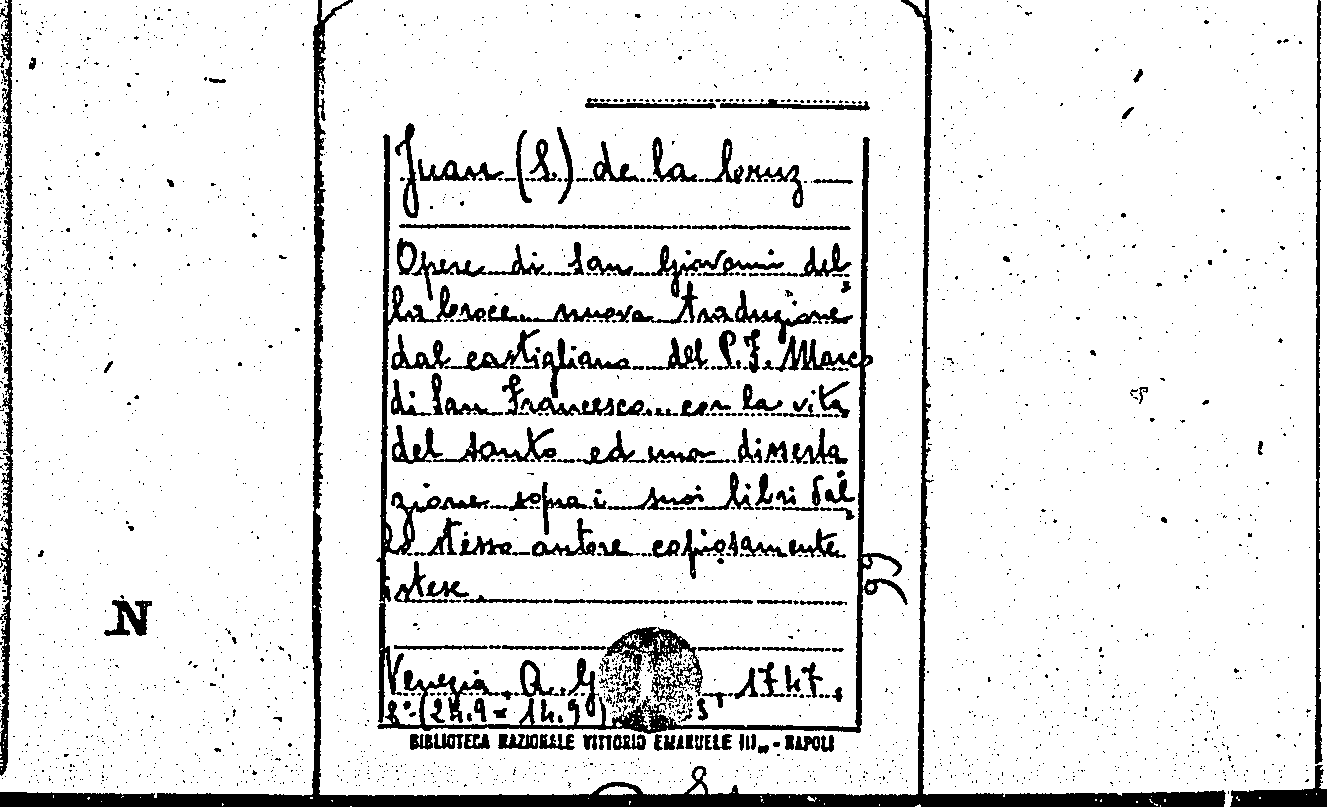 Juan (S.) de la Cruz
Opere di San Giovanni del
la Croce. nuova traduzione
dal castigliano del P. F. Marco
di San Francesco... con la vita
del santo ed una disserta
zione sopra i suoi libri dal
lo stesso autore copiosamente
istese.
Venezia. A. G 1747.
8° (24.9 = 14.9)
BIBLIOTECA NAZIONALE VITTORIO EMANUELE III - NAPOLI
N